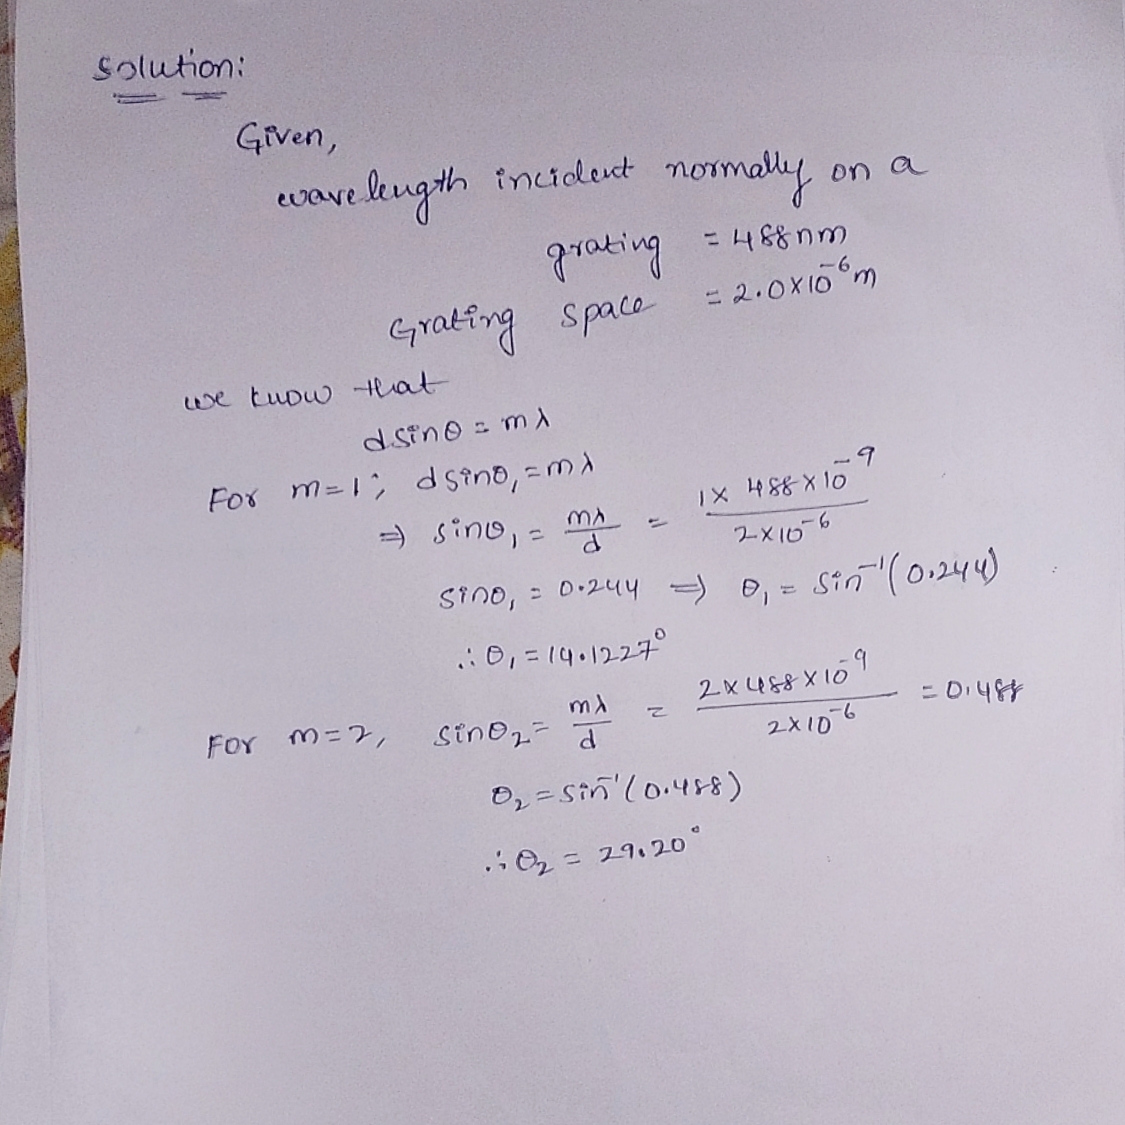 Solution:
Given,
wavelength incident normally on a
grating = 488nm
Grating space = 2.0×10⁻⁶m
we know that
dsinθ = mλ
For m=1; dsinθ₁ = mλ
⇒ sinθ₁ = mλ/d = 1× 488×10⁻⁹/2×10⁻⁶
sinθ₁ = 0.244 ⇒ θ₁ = Sin⁻¹(0.244)
∴ θ₁ = 14.1227⁰
For m=2, sinθ₂ = mλ/d = 2×488×10⁻⁹/2×10⁻⁶ = 0.488
θ₂ = sin⁻¹(0.488)
∴ θ₂ = 29.20°